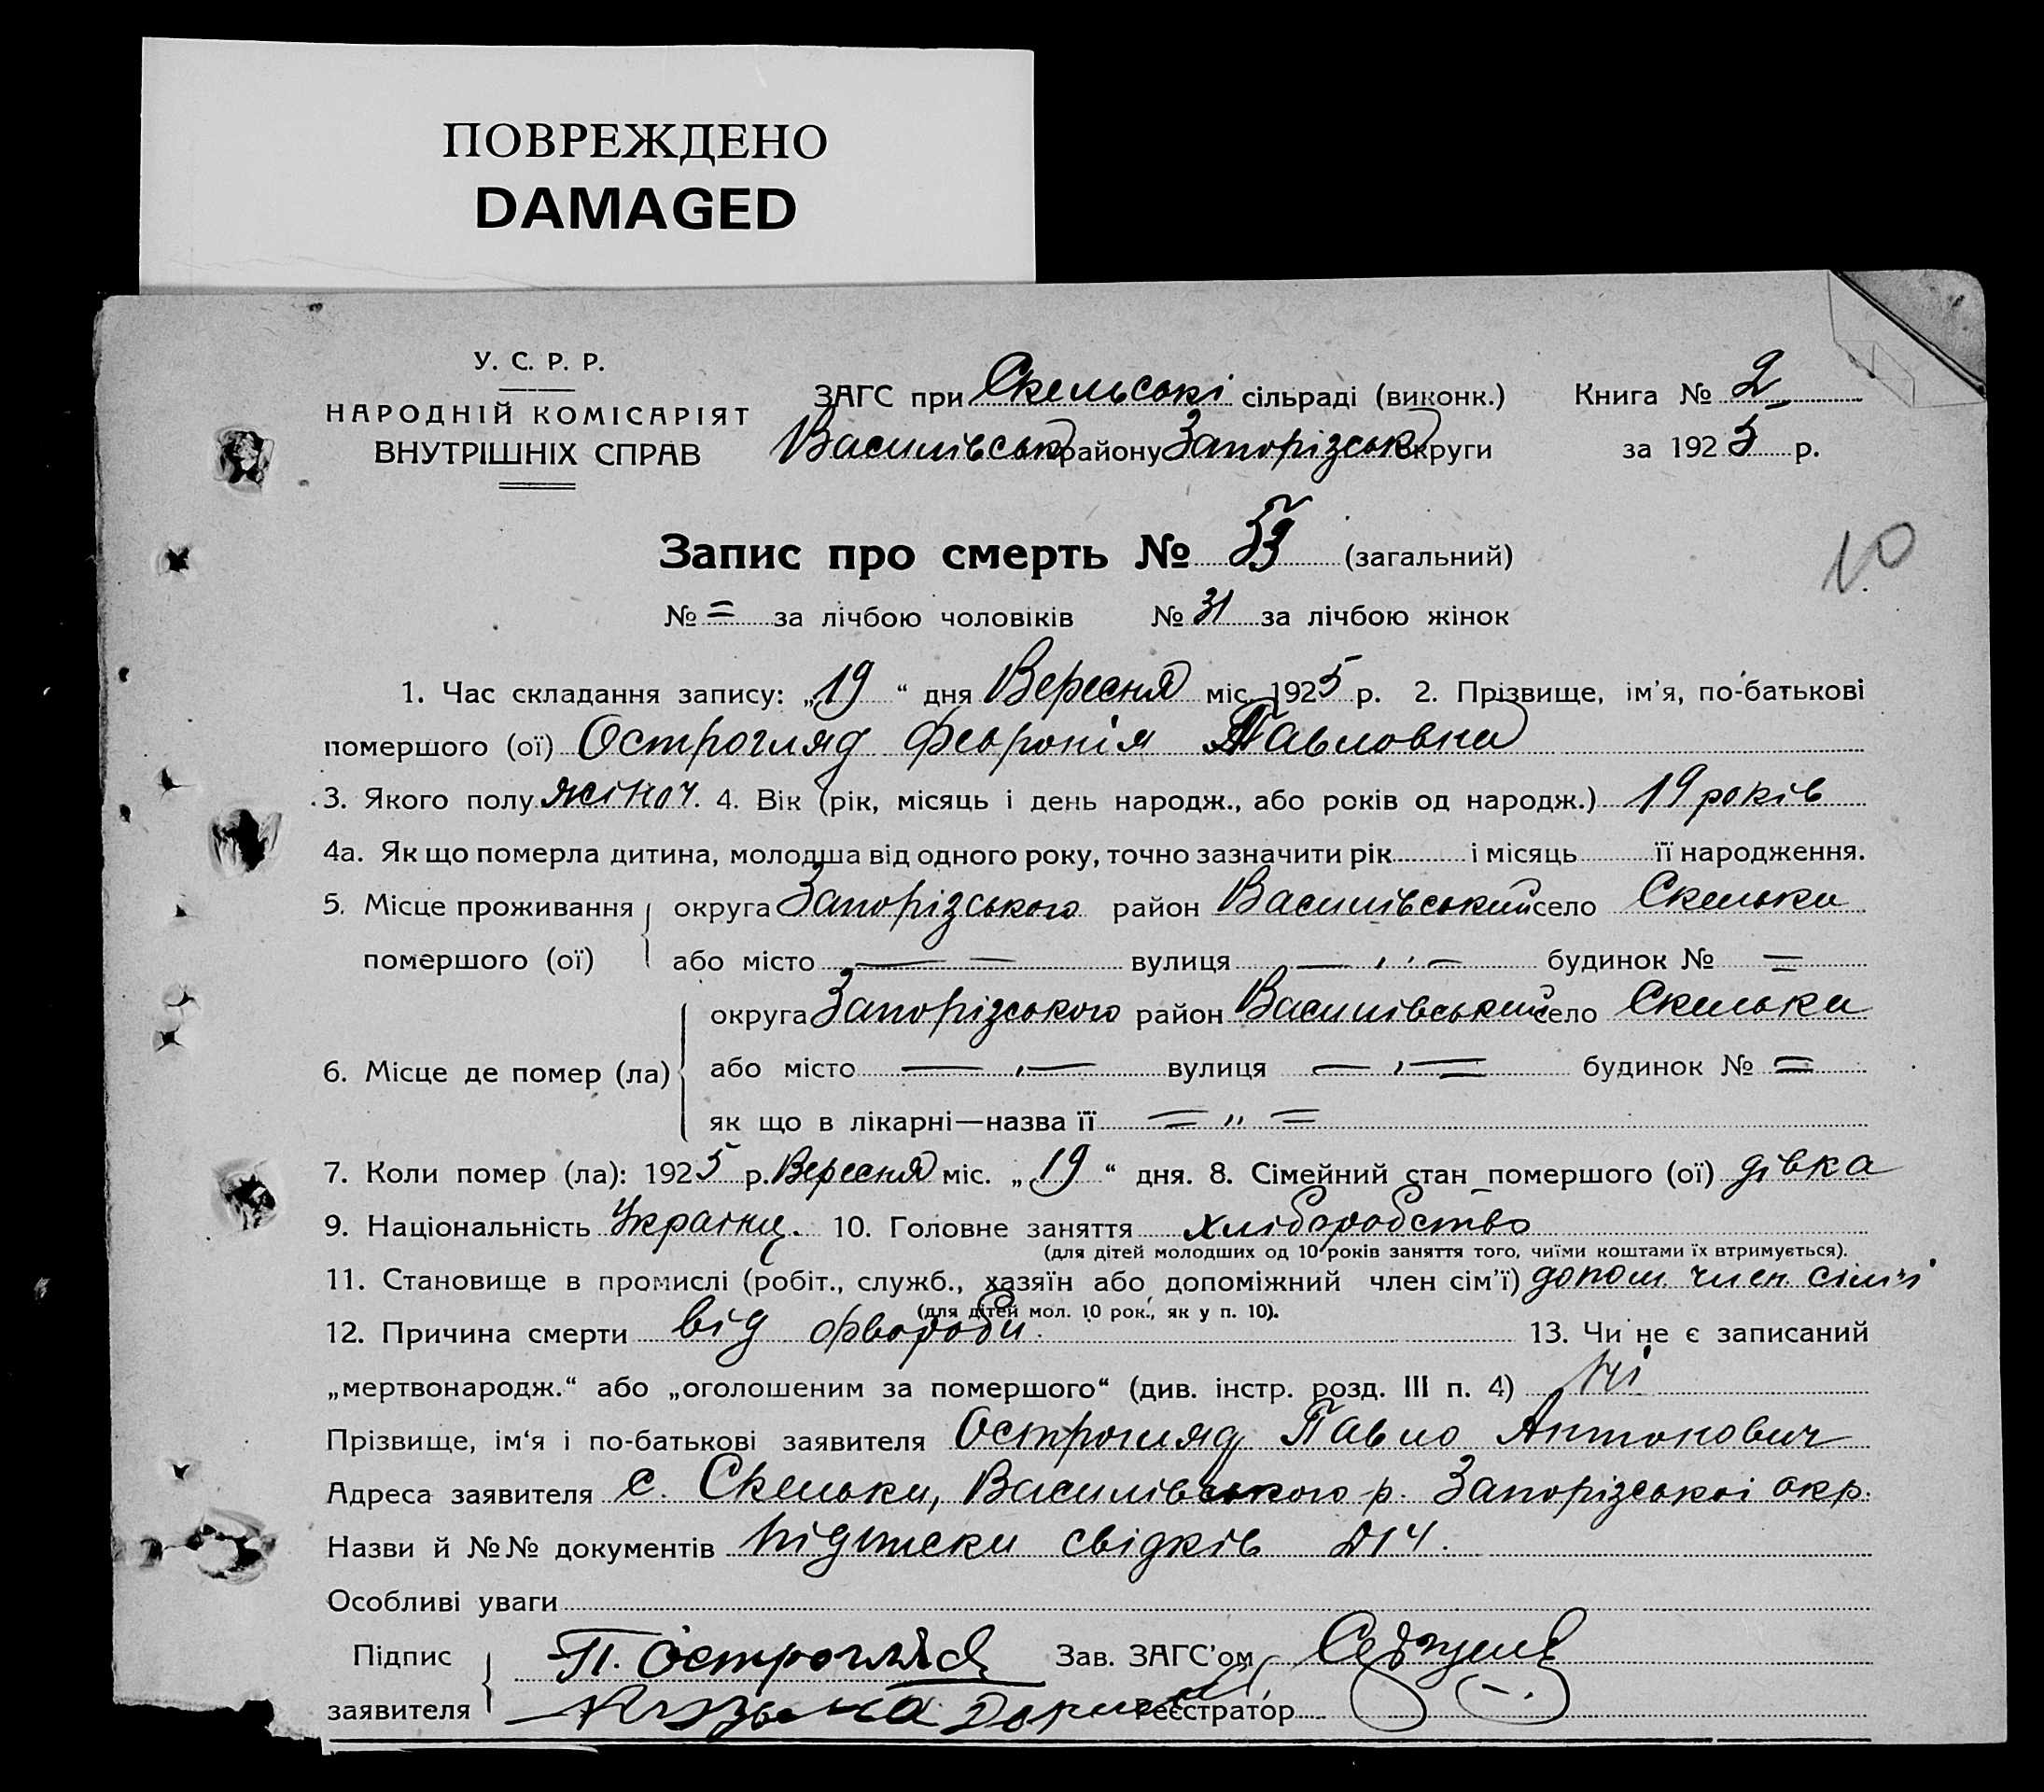 ПОВРЕЖДЕНО
DAMAGED
У. С. Р. Р.
НАРОДНІЙ КОМІСАРІЯТ
ВНУТРІШНІХ СПРАВ
ЗАГС при Скельські сільраді (виконк.) Книга № 2
Василівськ району Запорізськ округи за 1925 р.
Запис про смерть № 53 (загальний)
10
№ = за лічбою чоловіків № 31 за лічбою жінок
1. Час складання запису: „19“ дня Вересня міс. 1925 р. 2. Прізвище, ім'я, по-батькові
помершого (ої) Острогляд Февронія Павловна
3. Якого полу жіноч. 4. Вік (рік, місяць і день народж., або років од народж.) 19 років
4а. Як що померла дитина, молодша від одного року, точно зазначити рік і місяць її народження.
5. Місце проживання округа Запорізського район Василівський село Скельки
помершого (ої) або місто — — вулиця — „ — будинок № =
округа Запорізського район Василівський село Скельки
6. Місце де помер (ла) або місто — „ — вулиця — „ — будинок № =
як що в лікарні—назва її = „ =
7. Коли помер (ла): 1925 р. Вересня міс. „19“ дня. 8. Сімейний стан помершого (ої) дівка
9. Національність Українц. 10. Головне заняття хліборобство
(для дітей молодших од 10 років заняття того, чиїми коштами їх втримується).
11. Становище в промислі (робіт., служб., хазяїн або допоміжний член сім'ї) допом. член. сімї
(для дітей мол. 10 рок., як у п. 10).
12. Причина смерти від 13. Чи не є записаний
„мертвонародж.“ або „оголошеним за помершого“ (див. інстр. розд. III п. 4) ні
Прізвище, ім'я і по-батькові заявителя Острогляд Павло Антонович
Адреса заявителя с. Скельки, Василівського р. Запорізської окр.
Назви й №№ документів підписки свідків
Особливі уваги
Підпис П. Острогляд Зав. ЗАГС'ом
заявителя Реєстратор